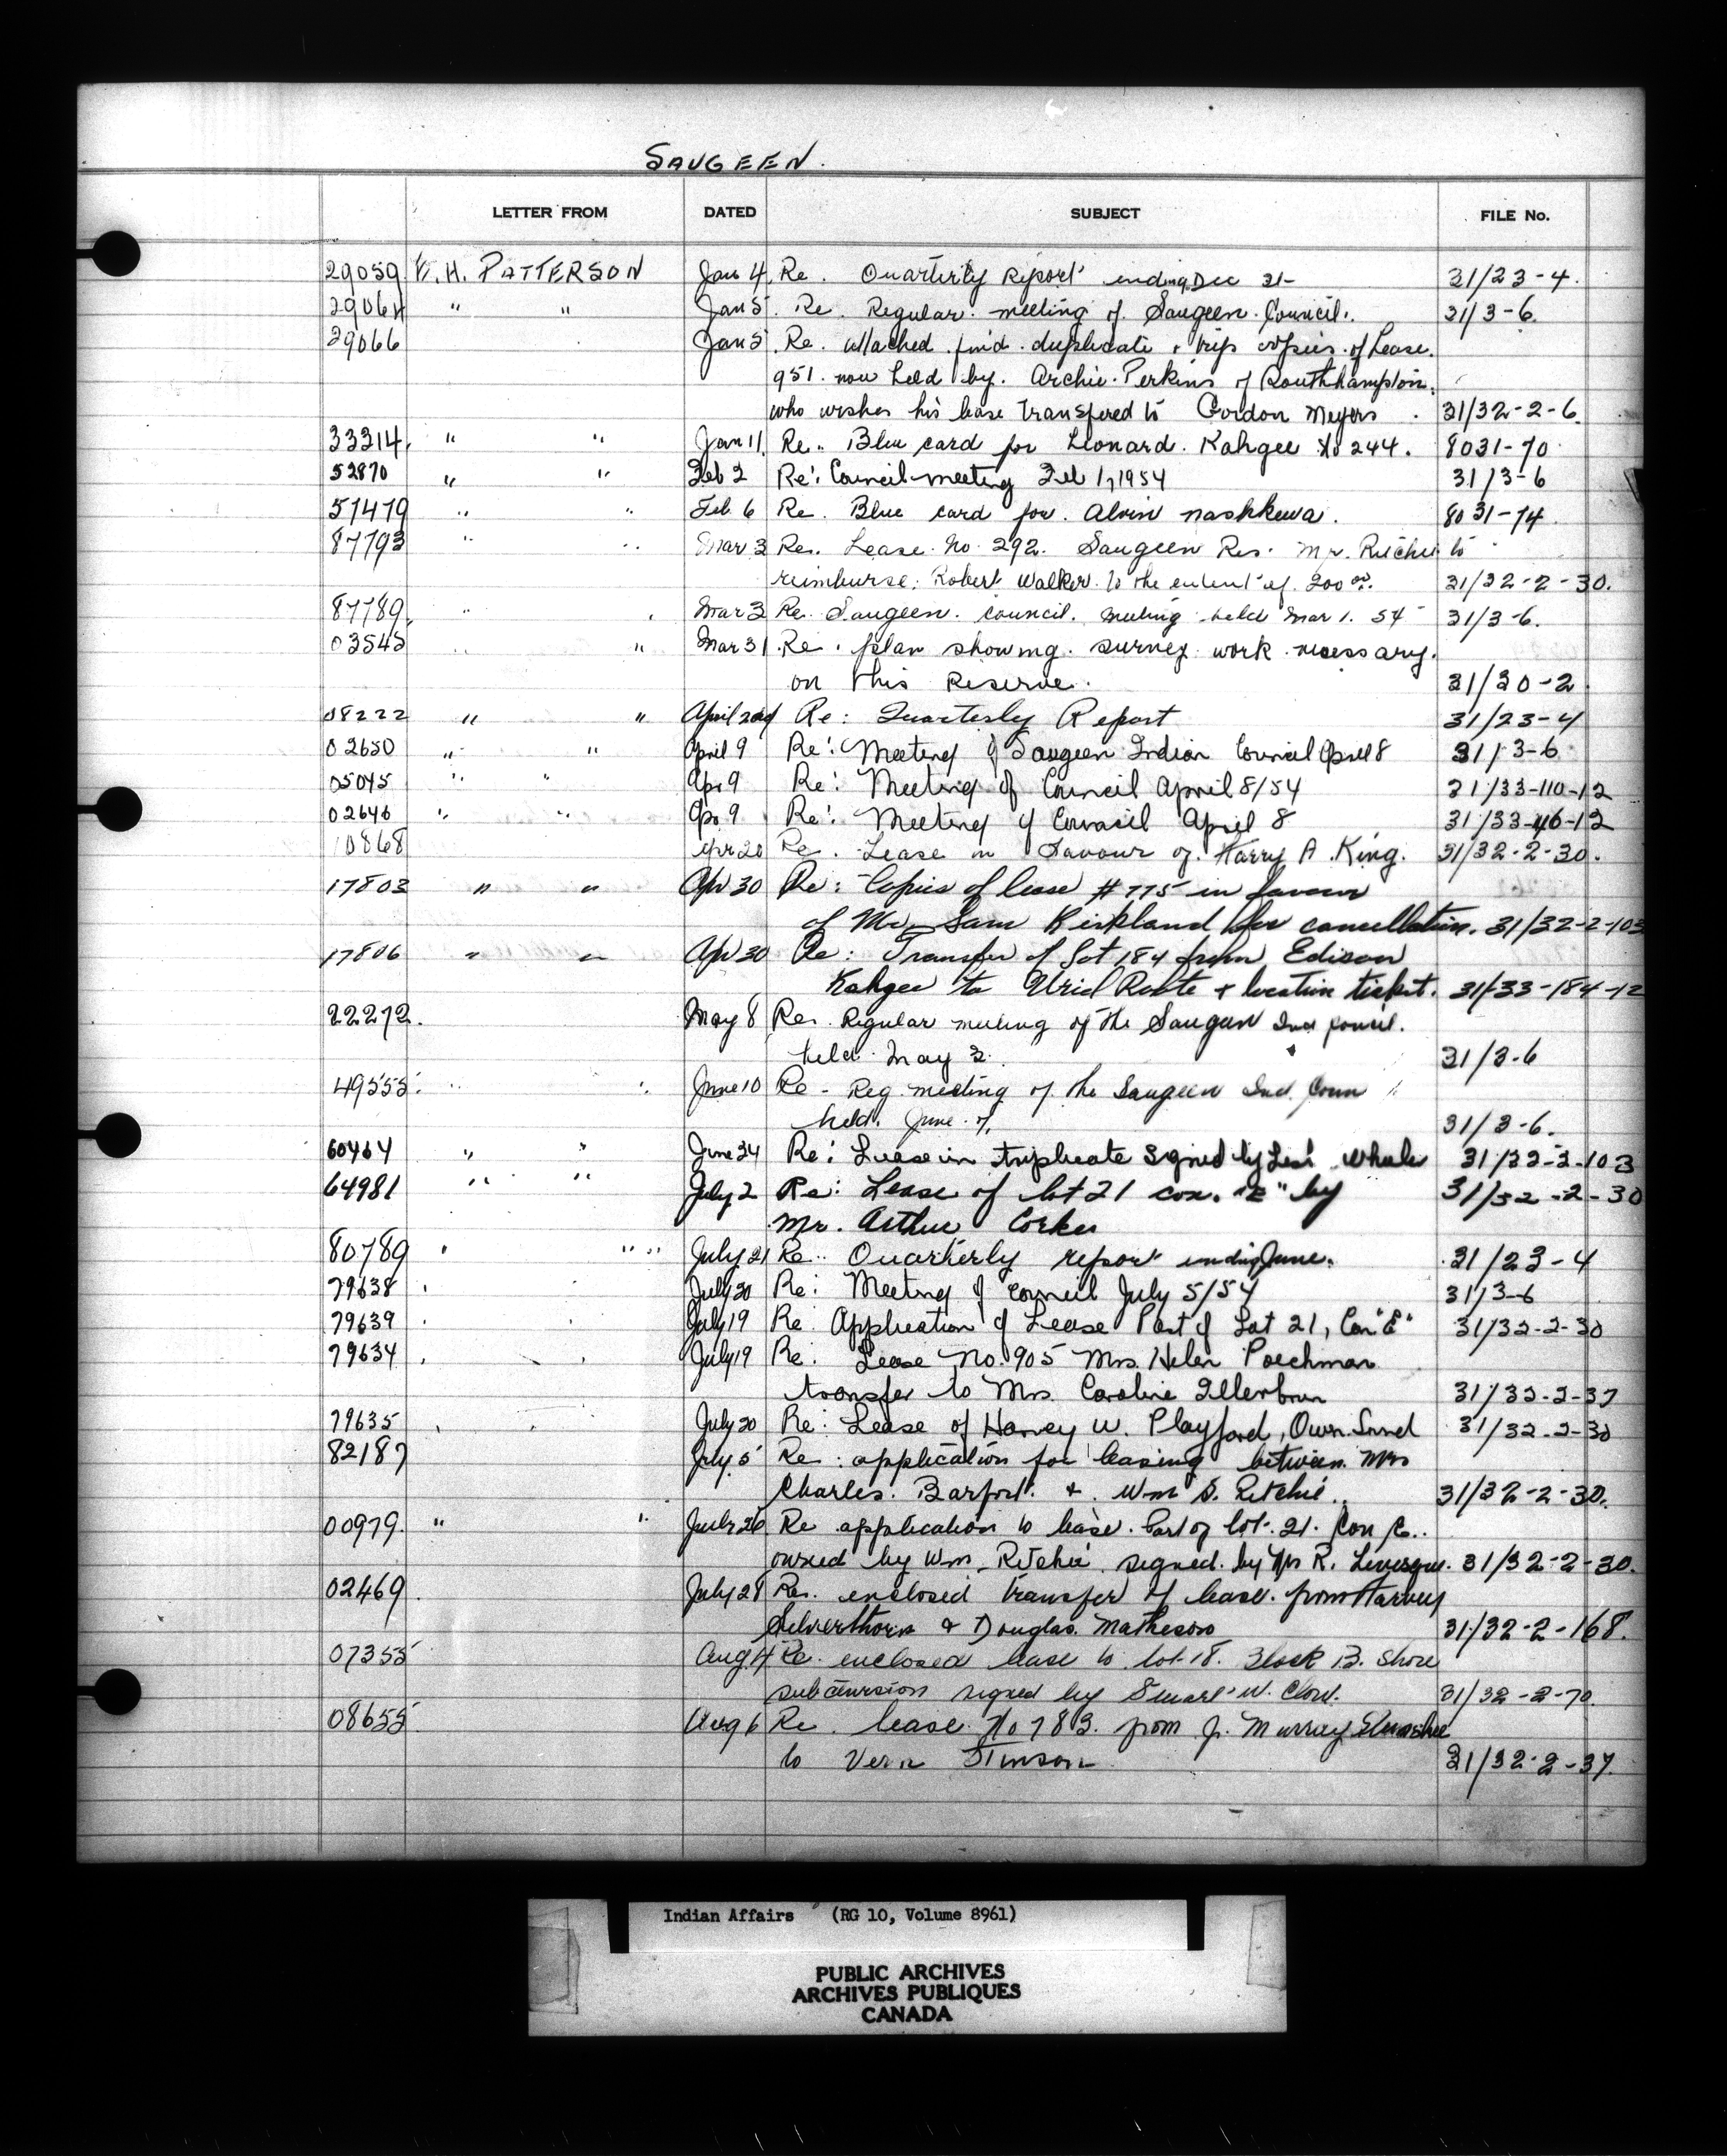 SAUGEEN.
LETTER FROM DATED SUBJECT FILE No.
29059 H. PATTERSON Jan 4 Re. Quarterly Report ending Dec 31- 31/23-4.
29064 " " Jan 5. Re. Regular meeting of Saugeen Council. 31/3-6.
29066 Jan 5. Re. attached find duplicate & trip copies of Lease.
951 now held by Archie Perkins of Southhampton.
who wishes his lease transfered to Gordon Meyers. 31/32-2-6.
33314. " " Jan 11. Re. Blue card for Leonard Kahgee No 244. 8031-70
52870 " " Feb 2 Re: Council meeting Feb 1, 1954 31/3-6
57479 " " Feb. 6 Re. Blue card for Alvin nashkewa. 8031-74
87793 " " Mar 3 Re. Lease No. 292. Saugeen Res. Mr. Ritchie to
reimburse Robert Walker to the extent of 200 31/32-2-30.
87789. " " Mar 3 Re. Saugeen council meeting held Mar 1. 54 31/3-6.
03545 " " Mar 31. Re. plan showing survey work necessary.
on this Reserve. 31/30-2
08222 " " April 2nd Re: Quarterly Report 31/23-4
02650 " " April 9 Re: Meeting of Saugeen Indian Council April 8 31/3-6
05045 " " Apr 9 Re: Meeting of Council April 8/54 31/33-110-12
02646 " " Apr 9 Re: Meeting of Council April 8 31/33-46-12
10868 Apr 20 Re. Lease in favour of Harry A. King. 31/32-2-30.
17803 " " Apr 30 Re: Copies of lease #775 in favour
of Mr. Sam Kirkland for cancellation. 31/32-2-103
17806 " " Apr 30 Re: Transfer of Lot 184 from Edison
Kahgee to Route & location ticket. 31/33-184-12
22272. May 8 Re. Regular meeting of the Saugeen Ind Council.
held May 3. 31/3-6
49555. " " June 10 Re - Reg. meeting of the Saugeen Ind. Coun
held June 7. 31/3-6.
60464 " " June 24 Re: Lease in triplicate signed by 31/32-2-103
64981 " " July 2 Re: Lease of lot 21 con. "E" by 31/32-2-30
Mr. Arthur Corker
80789 " " " July 21 Re. Quarterly report ending June. 31/23-4
79638 July 20 Re: Meeting of Council July 5/54 31/3-6
79639 July 19 Re. Application of Lease Part of Lot 21, Con "E" 31/32-2-30
79634 July 19 Re. Lease No. 905 Mrs. Helen Poechman
transfer to Mrs. Caroline 31/32-2-37
79635 July 20 Re: Lease of Harvey W. Playford, Owen Sound 31/32-2-30
82187 July 5 Re: application for leasing between Mrs
Charles. Barfoot & Wm S. Ritchie. 31/32-2-30.
00979. " " July 26 Re application to lease. Part of lot. 21. Con E.
owned by Wm Ritchie signed. by R. Levesque. 31/32-2-30.
02469 July 28 Re. enclosed transfer of lease. from Harvey
Silverthorn & Douglas Matheson 31/32-2-168.
07355 Aug. 4 Re. enclosed lease to lot 18. Block B. Shore
subdivision signed by W. 31/32-2-70.
08655 Aug 6 Re. lease No 783. from J. Murray
to Vern Stinson 31/32-2-37.
Indian Affairs (RG 10, Volume 8961)
PUBLIC ARCHIVES
ARCHIVES PUBLIQUES
CANADA